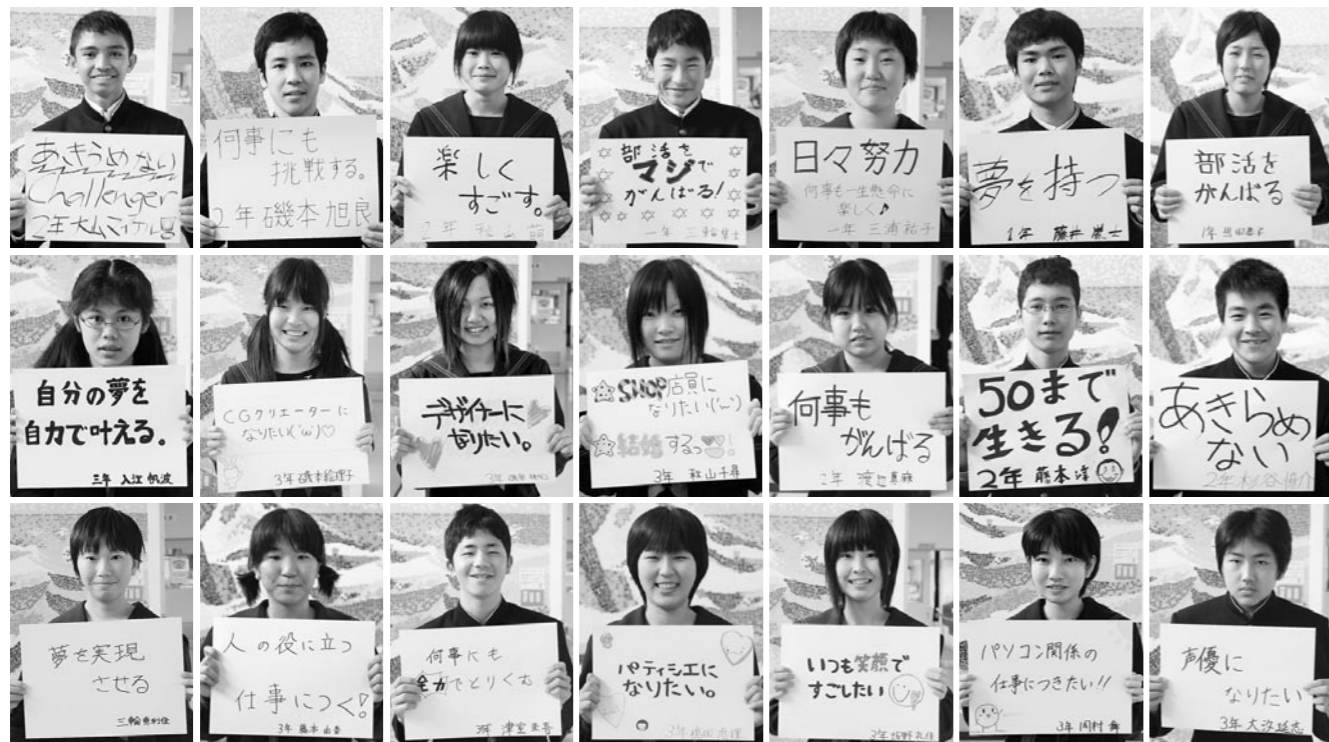 あきらめない
Challenger
2年 大山
何事にも
挑戦する。
2年 磯本旭良
楽しく
すごす。
2年 秋山
部活を
マジで
がんばる!
一年 三輪
日々努力
何事も一生懸命に
楽しく♪
一年 三浦祐子
夢を持つ
1年 藤井
部活を
がんばる
1年
自分の夢を
自力で叶える。
三年 入江 帆波
CGクリエーターに
なりたい('ω')♡
3年 磯本絵理子
デザイナーに
なりたい。
3年
SHOP店員に
なりたい('ω')
結婚するっ!
3年 秋山千尋
何事も
がんばる
二年 渡辺
50まで
生きる!
2年 藤本
あきらめ
ない
2年
夢を実現
させる
人の役に立つ
仕事につく!
3年 藤本
何事にも
全力でとりくむ
3年 津室
パティシエに
なりたい。
3年
いつも笑顔で
すごしたい
3年
パソコン関係の
仕事につきたい!!
3年 岡村 舞
声優に
なりたい
3年